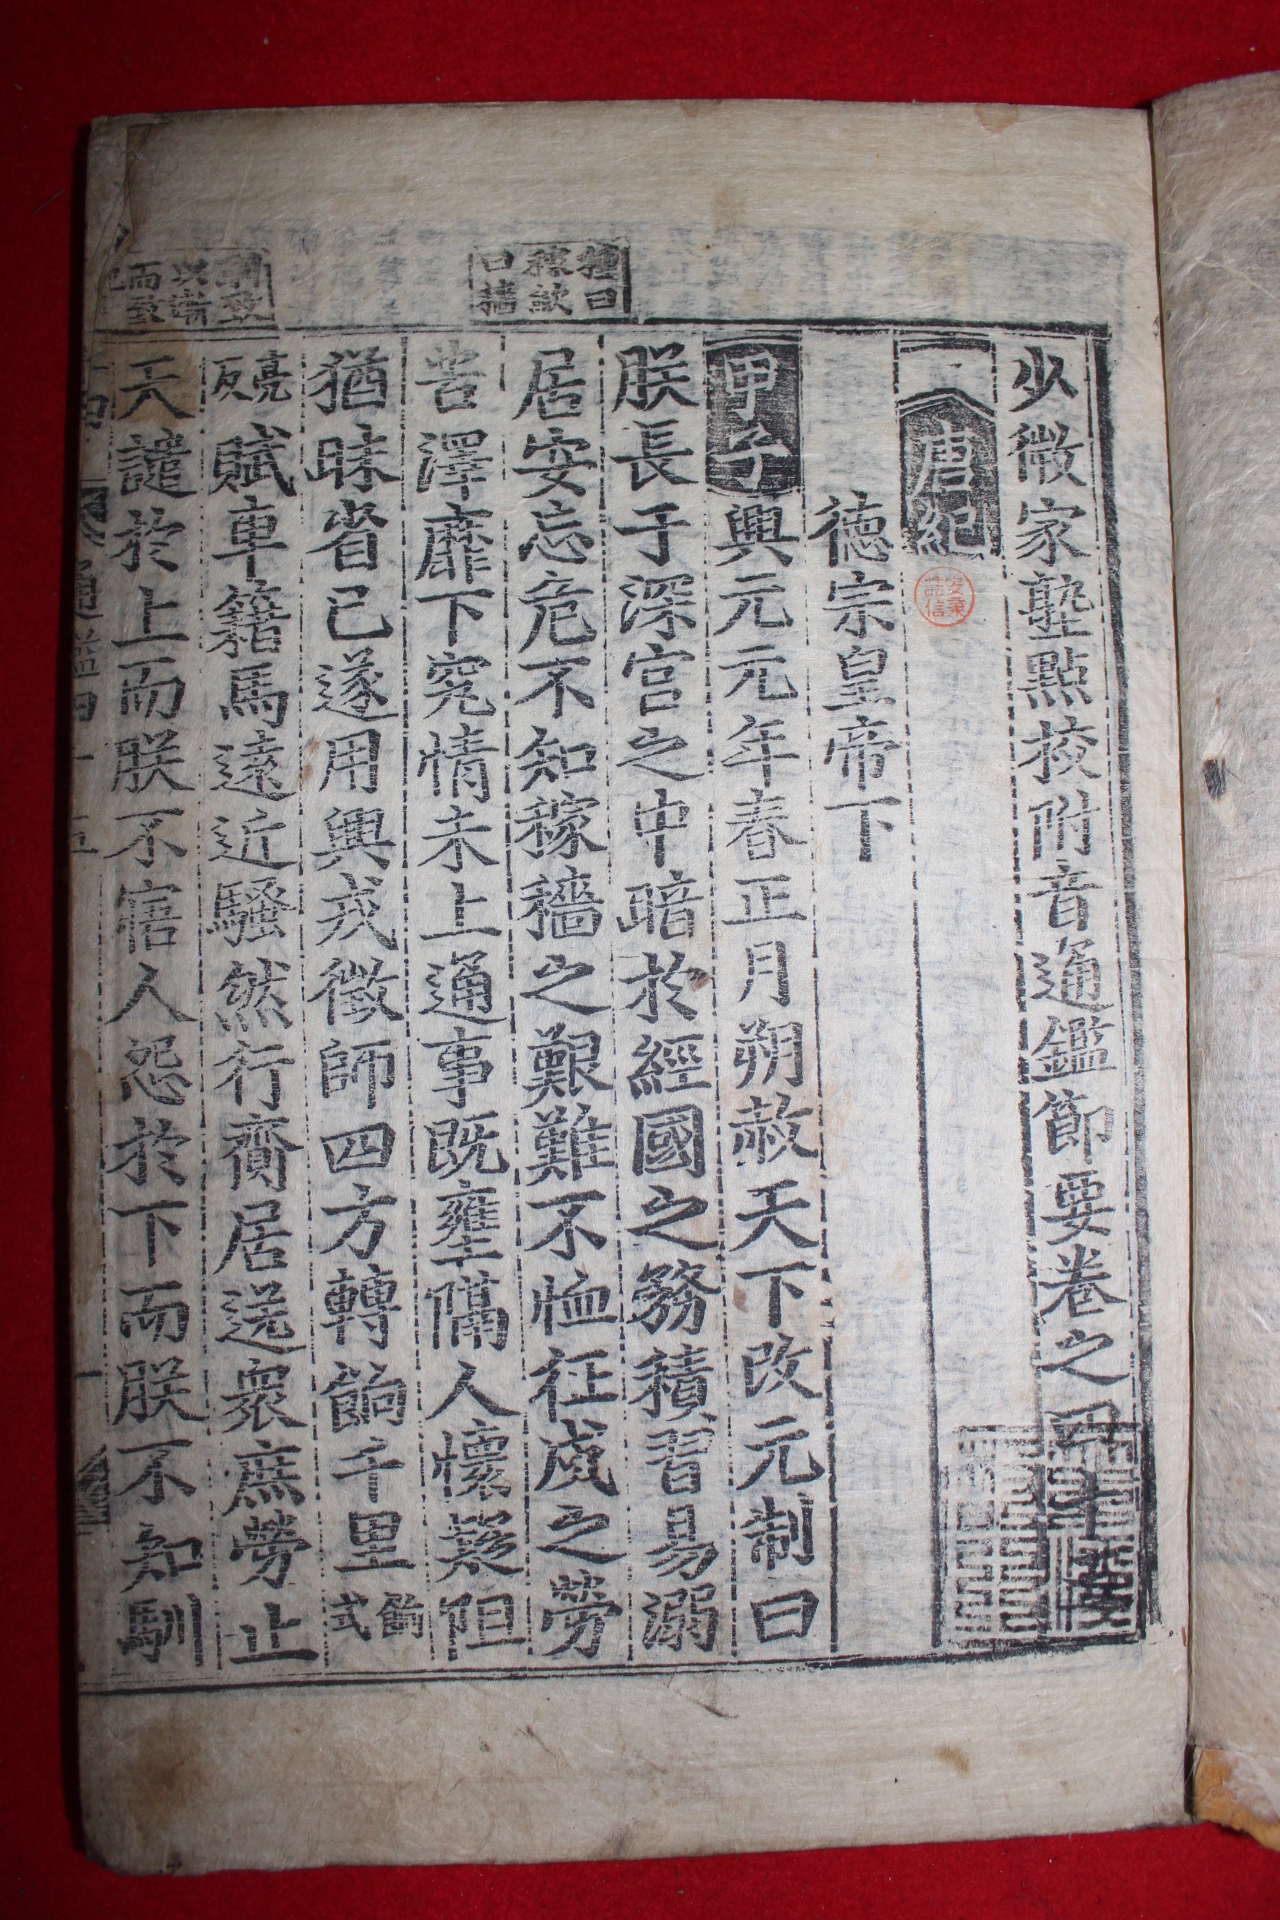 種曰
稼歛
曰穡
馴致
以漸
而致
也
少微家塾點校附音通鑑節要卷之四十五
唐紀
德宗皇帝下
甲子興元元年春正月朔赦天下改元制曰
朕長于深宮之中暗於經國之務積習易溺
居安忘危不知稼穡之艱難不恤征戍之勞
苦澤靡下究情未上通事旣壅隔人懷疑阻
猶昧省己遂用興戎徵師四方轉餉千里餉式
亮反賦車籍馬遠近騷然行齎居送衆庶勞止
天譴於上而朕不寤人怨於下而朕不知馴
通鑑四十五
一